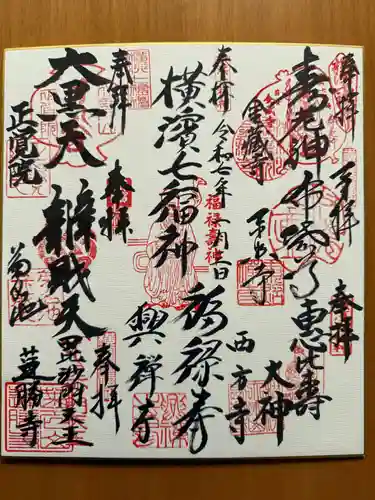 奉拝
寿老神
金蔵寺
奉拝
布袋尊
奉拝
恵比寿
大神
奉拝
令和七年一月一日
横濱七福神
福禄寿神
福禄寿
西方寺
興禅寺
奉拝
大黒天
正覚院
奉拝
辨財天
菊名池
奉拝
毘沙門天王
蓮勝寺